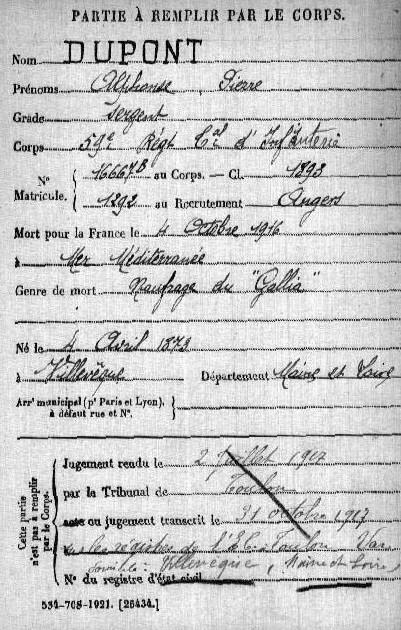 PARTIE À REMPLIR PAR LE CORPS.
Nom DUPONT
Prénoms Alphonse Pierre
Grade Sergent
Corps 59e Régt Cal d'Infanterie
N° Matricule. { 16667B au Corps. — Cl. 1893
1292 au Recrutement Angers
Mort pour la France le 4 Octobre 1916
à Mer Méditerranée
Genre de mort Naufrage du "Gallia"
Né le 4 Avril 1873
à Villevêque Département Maine et Loire
Arrt municipal (pr Paris et Lyon), à défaut rue et N°.
Cette partie n'est pas à remplir par le Corps.
Jugement rendu le 2 Juillet 1917
par le Tribunal de Toulon
acte ou jugement transcrit le 31 octobre 1917
sur les registres de l'E.C. Toulon Var
domicile: Villevêque, Maine et Loire
N° du registre d'état civil
534-708-1921. [26434.]